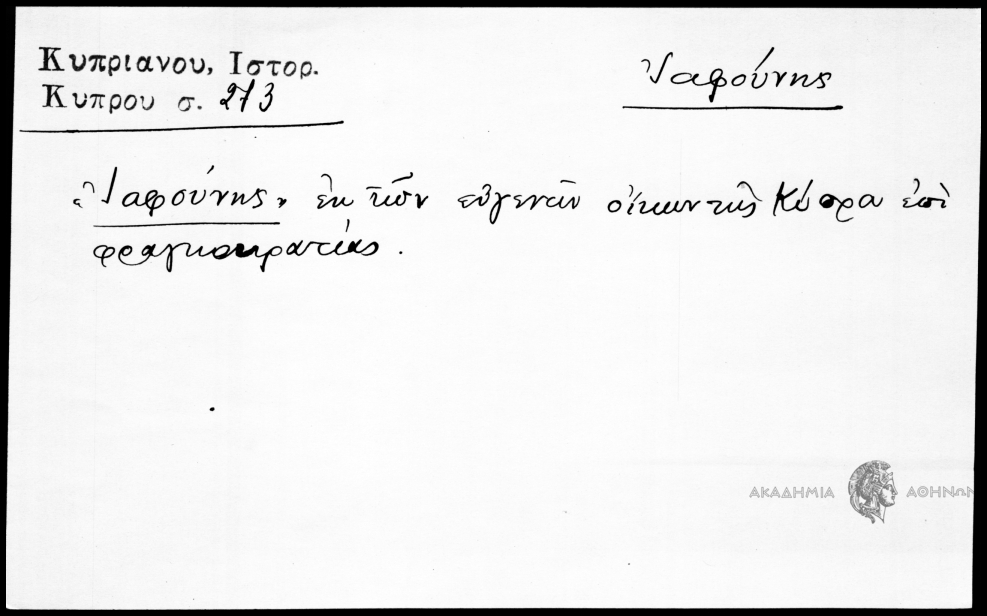 Κυπριανου, Ιστορ.
Κυπρου σ. 273
Ἰαφούνης
«Ἰαφούνης» ἐκ τῶν εὐγενῶν οἴκων τῆς Κύπρου ἐπὶ
φραγκοκρατίας.
ΑΚΑΔΗΜΙΑ ΑΘΗΝΩΝ